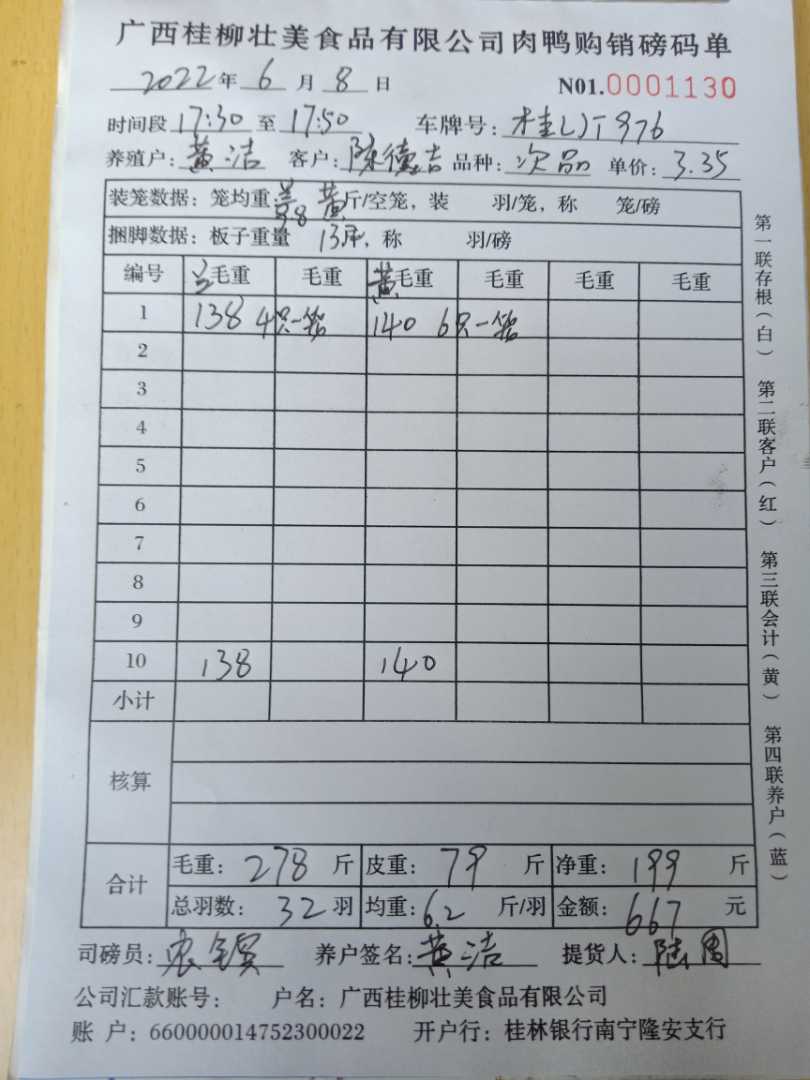 广西桂柳壮美食品有限公司肉鸭购销磅码单
2022年6月8日 N01.0001130
时间段17:30至17:50 车牌号:桂 976
养殖户:黄洁 客户:陈德吉 品种:次品 单价:3.35
装笼数据:笼均重 斤/空笼,装 羽/笼,称 笼/磅
捆脚数据:板子重量 13斤,称 羽/磅
编号 毛重 毛重 黄毛重 毛重 毛重 毛重
1 138 4只一笼 140 6只一笼
2
3
4
5
6
7
8
9
10 138 140
小计
核算
合计 毛重:278斤 皮重:79斤 净重:199斤
总羽数:32羽 均重:6.2斤/羽 金额:667元
司磅员: 养户签名:黄洁 提货人:陆周
公司汇款账号: 户名:广西桂柳壮美食品有限公司
账 户:660000014752300022 开户行:桂林银行南宁隆安支行
第一联存根(白) 第二联客户(红) 第三联会计(黄) 第四联养户(蓝)